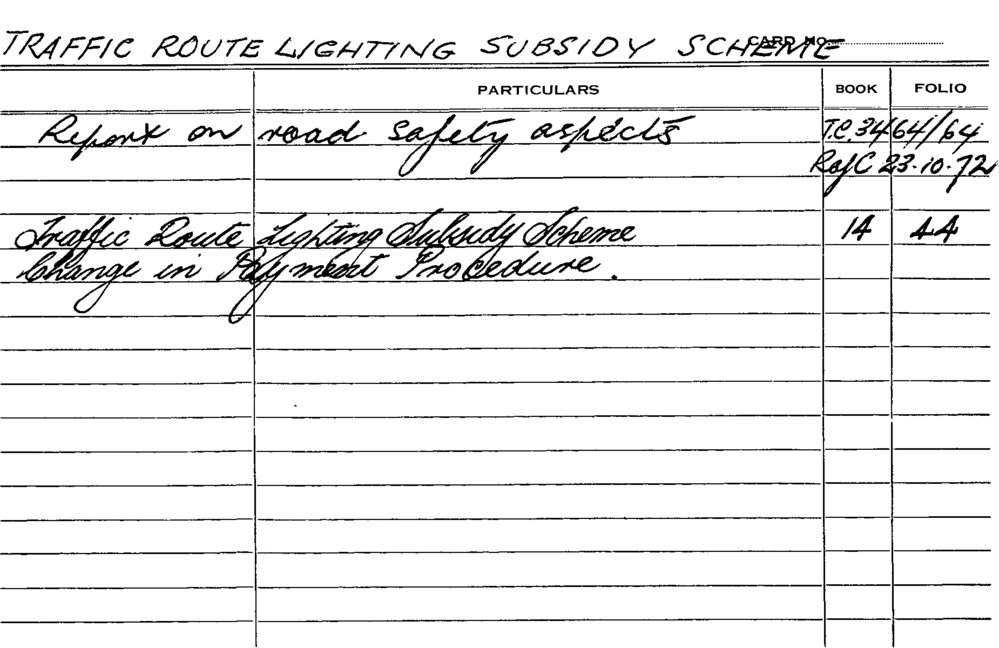 TRAFFIC ROUTE LIGHTING SUBSIDY SCHEME CARD NO
PARTICULARS BOOK FOLIO
Report on road safety aspects T.C. 3464/64
23.10.72
Traffic Route Lighting Subsidy Scheme 14 44
Change in Payment Procedure.